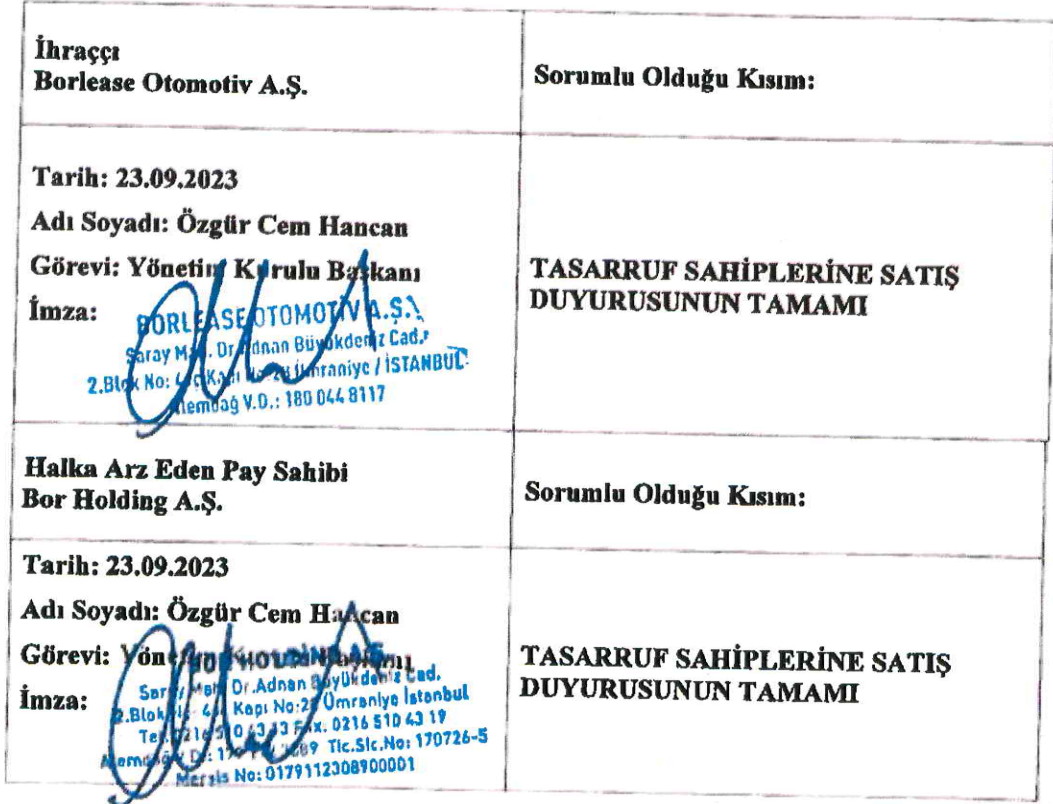 İhraççı
Borlease Otomotiv A.Ş.
Sorumlu Olduğu Kısım:
Tarih: 23.09.2023
Adı Soyadı: Özgür Cem Hancan
Görevi: Yönetim Kurulu Başkanı
İmza:
BORLEASE OTOMOTİV A.Ş.
Saray Mah. Dr. Adnan Büyükdeniz Cad.
2.Blok No: Kapı No: 28 Ümraniye / İSTANBUL
Alemdağ V.D.: 180 044 8117
TASARRUF SAHİPLERİNE SATIŞ
DUYURUSUNUN TAMAMI
Halka Arz Eden Pay Sahibi
Bor Holding A.Ş.
Sorumlu Olduğu Kısım:
Tarih: 23.09.2023
Adı Soyadı: Özgür Cem Hancan
Görevi: Yönetim Kurulu Başkanı
İmza:
BOR HOLDİNG A.Ş.
Saray Mah. Dr.Adnan Büyükdeniz Cad.
2.Blok Kapı No:28 Ümraniye İstanbul
Tel: 0216 510 43 13 Fax. 0216 510 43 19
Alemdağ V.D.: Tic.Sic.No: 170726-5
Mersis No: 0179112308900001
TASARRUF SAHİPLERİNE SATIŞ
DUYURUSUNUN TAMAMI